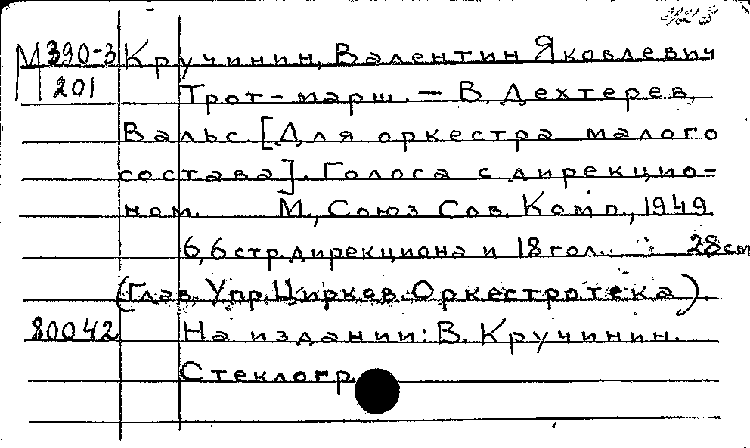 М 390-3 Кручинин, Валентин Яковлевич
201 Трот-марш. — В. Дехтерев.
Вальс. [Для оркестра малого
состава]. Голоса с дирекцио-
ном. М., Союз Сов. Комп., 1949.
6, 6 стр. дирекциона и 18 гол. ; 28 cm
(Глав. Упр. Цирков. Оркестротека).
80042 На издании: В. Кручинин.
Стеклогр.